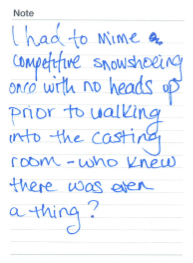 Note
I had to mime
competitive snowshoeing
once with no heads up
prior to walking
into the casting
room - who knew
there was even
a thing?